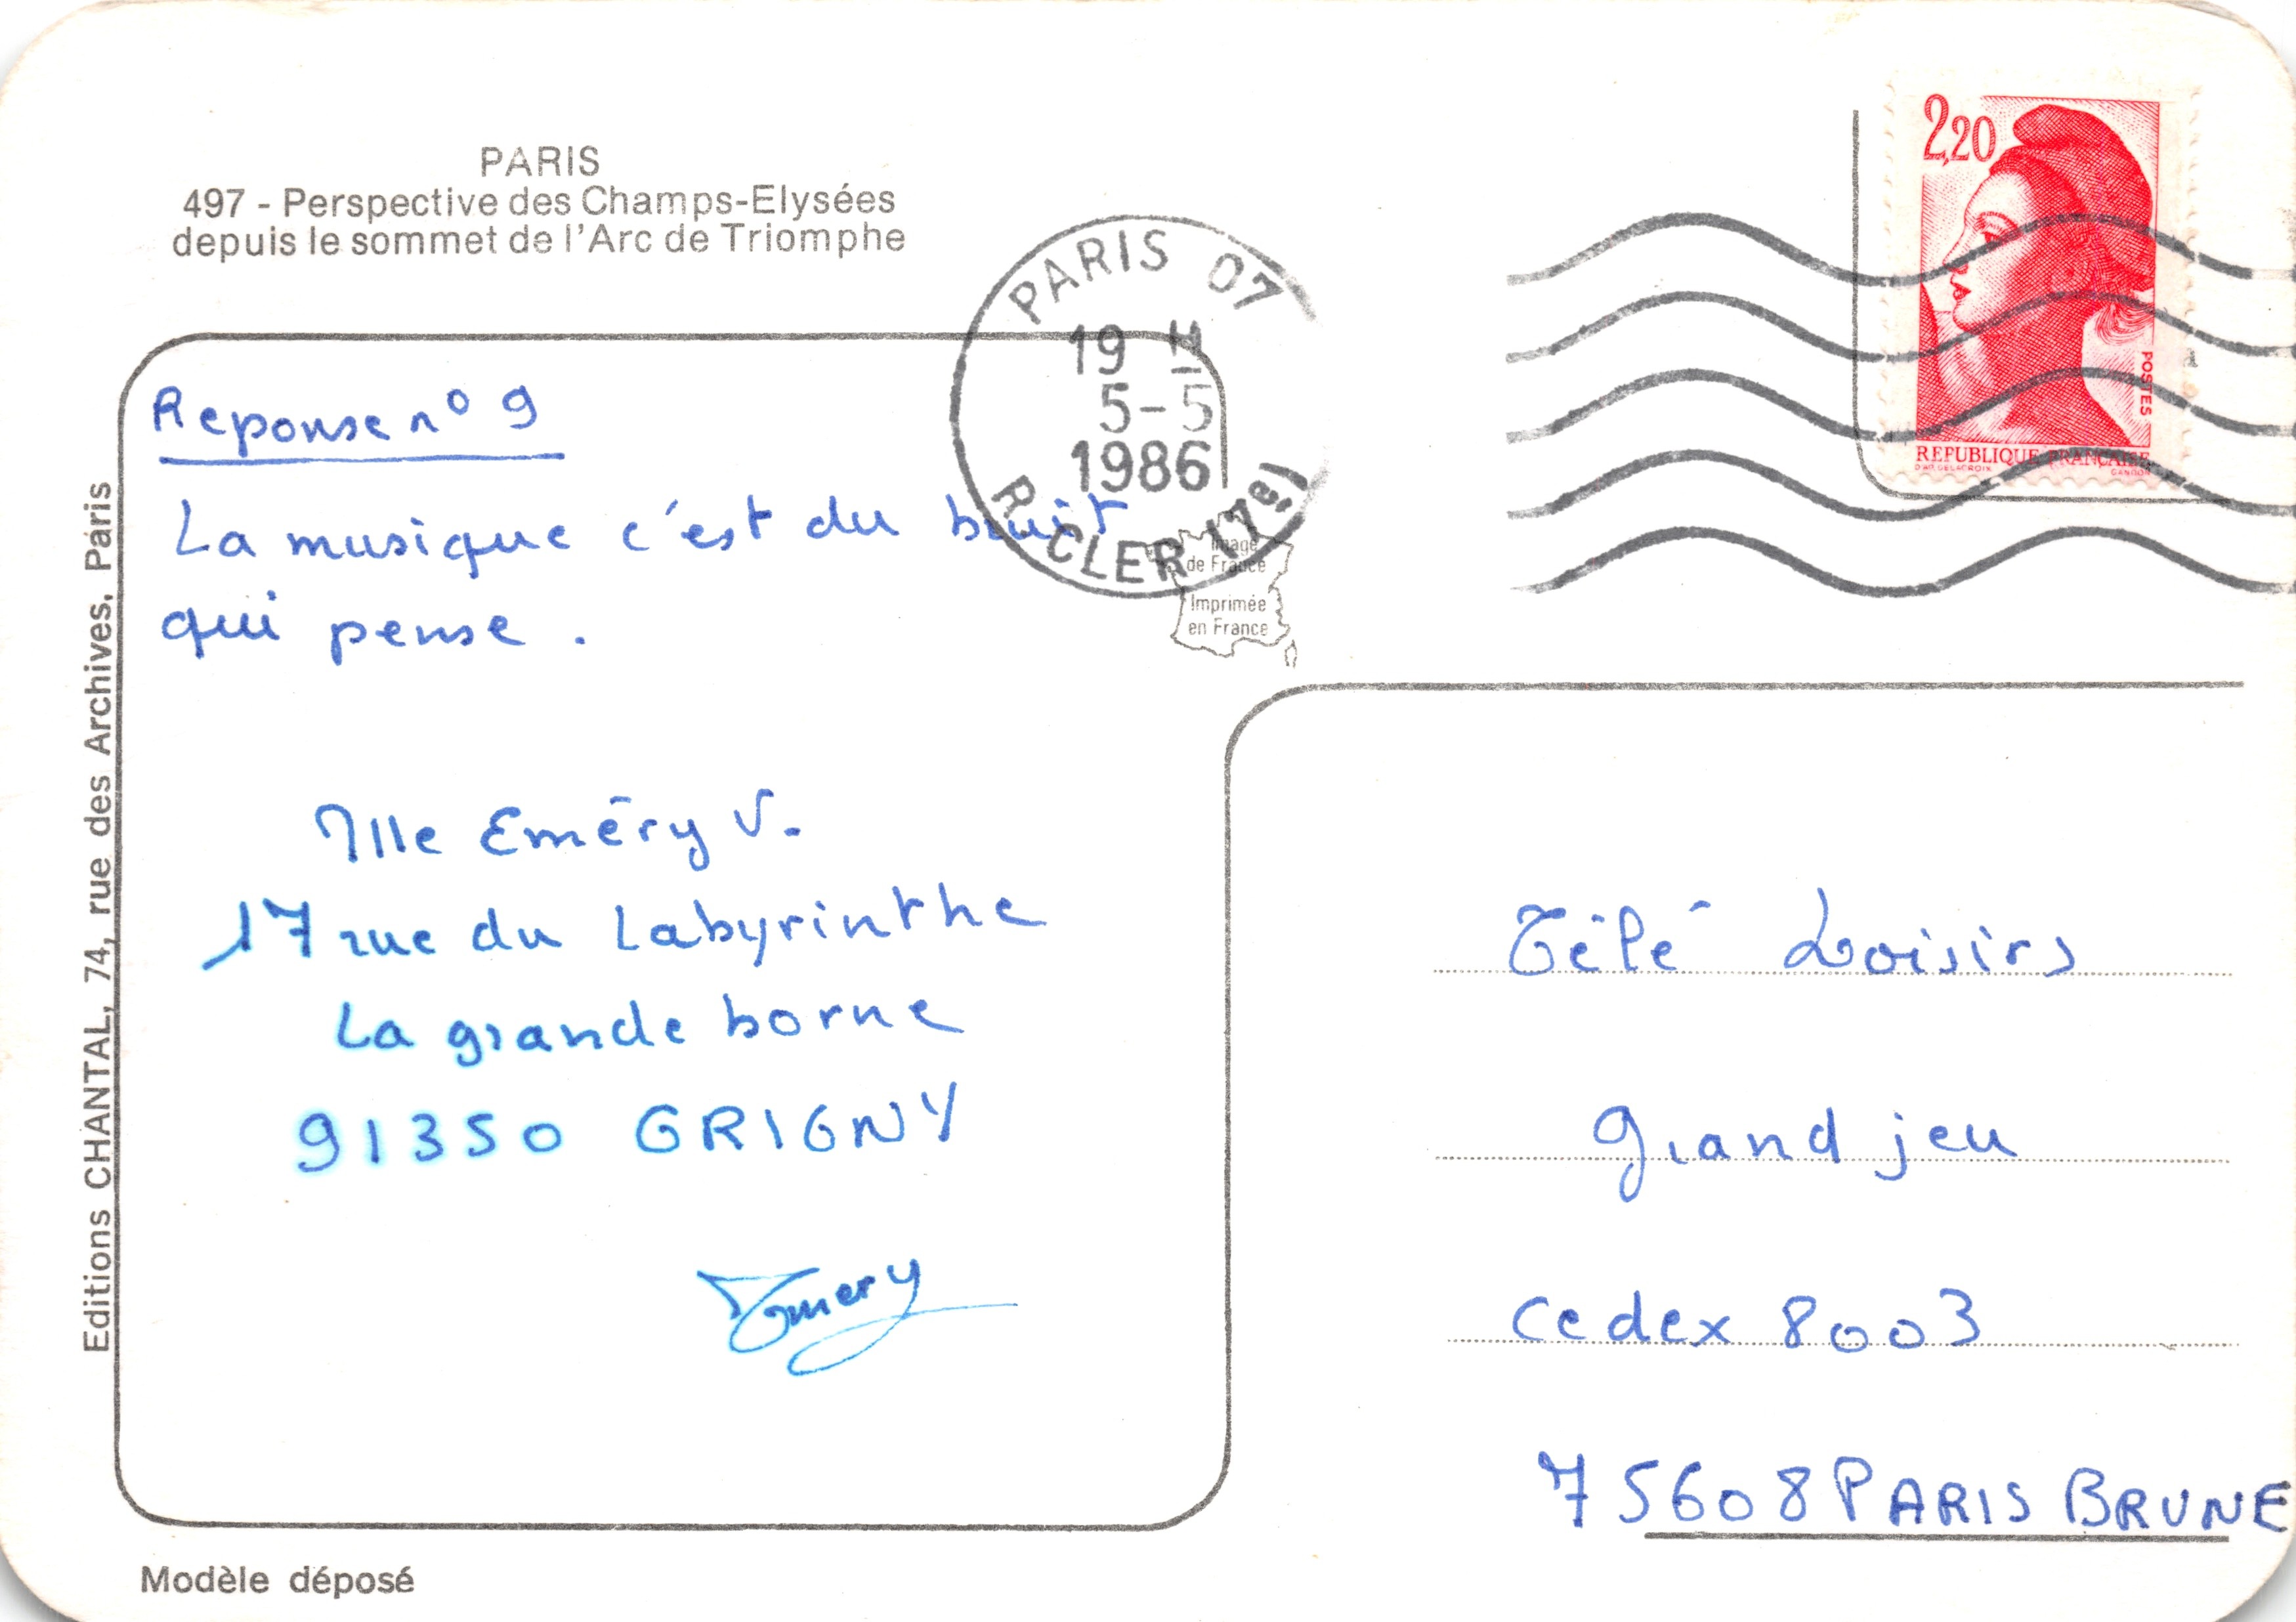 PARIS
497 - Perspective des Champs-Elysées
depuis le sommet de l'Arc de Triomphe
Reponse n° 9
La musique c'est du bruit
qui pense.
Mlle Eméry V.
17 rue du Labyrinthe
La grande borne
91350 GRIGNY
Emery
Editions CHANTAL, 74, rue des Archives, Paris
Modèle déposé
PARIS 07
19 H
5-5
1986
R. CLER (7è)
Image
de France
Imprimée
en France
2,20
POSTES
REPUBLIQUE FRANÇAISE
D'AP. DELACROIX
GANDON
Télé Loisirs
Grand jeu
Cedex 8003
75608 PARIS BRUNE